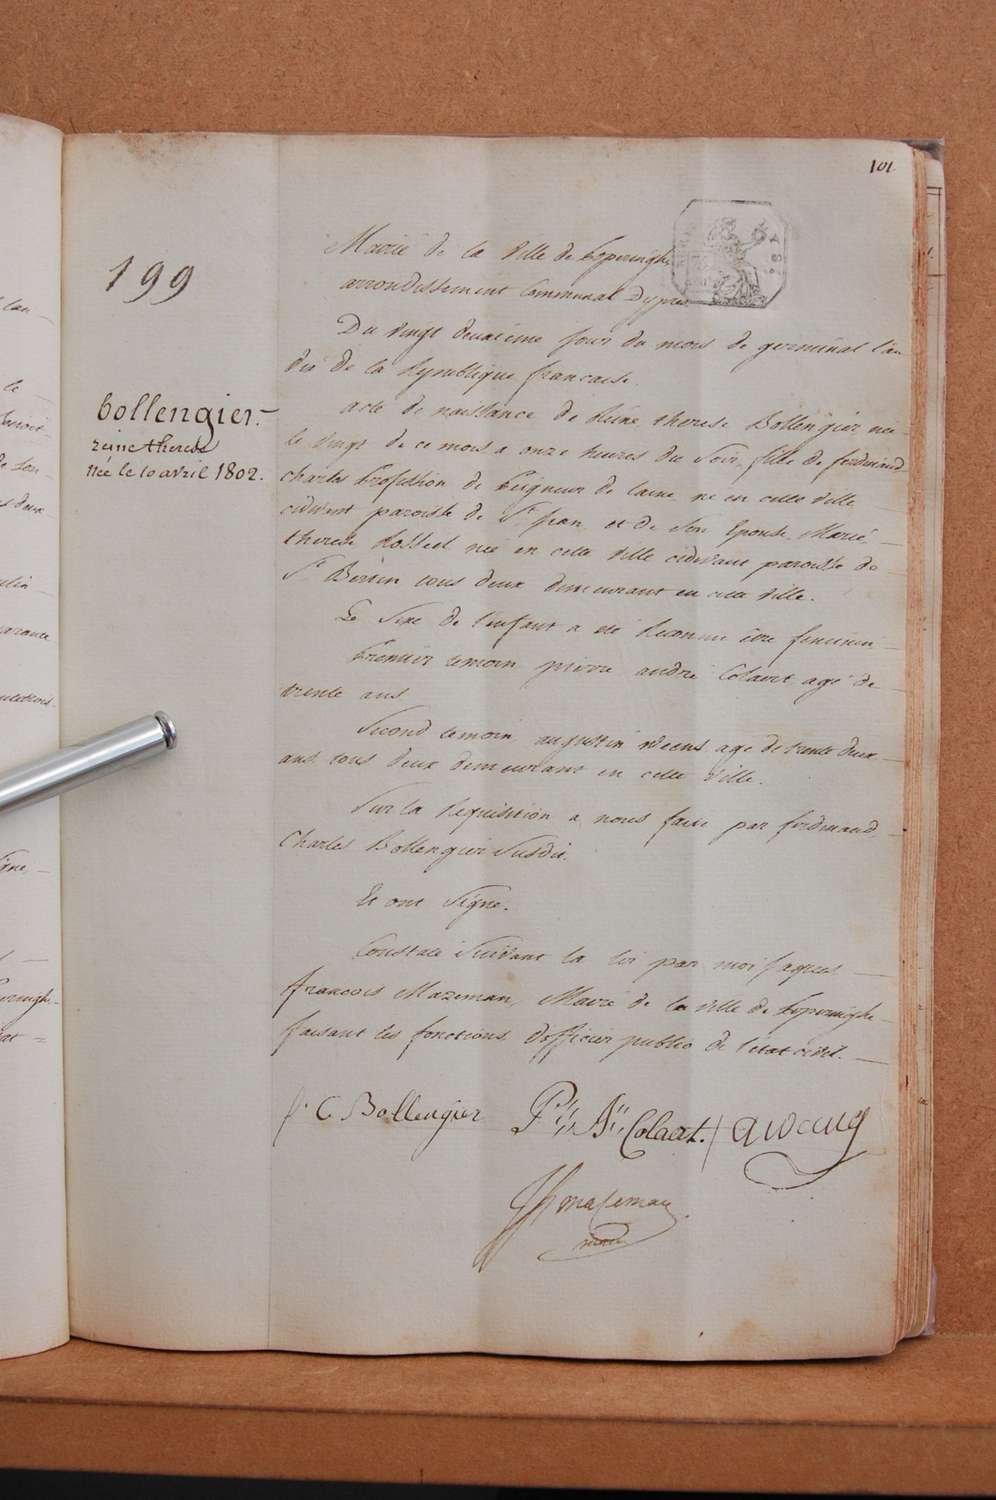 101
199
Mairie de la Ville de Poperinghe
arrondissement Communal Dypres
Du Vingt deuxieme jour du mois de germinal l'an
dix de la Republique francaise.
bollengier.
reine therese
née le 10 avril 1802.
acte de naissance de Reine therese Bollengier née
le Vingt de ce mois a onze heures du Soir, fille de ferdinand
charles Profession de Peigneur de laine né en cette ville
cidevant paroisse de St jean et de Son Epouse Marie
therese Rosseel née en cette Ville cidevant paroisse de
St Bertin tous deux demeurant en cette Ville.
Le Sexe de l'enfant a été Reconnu être feminin
Premier temoin pierre andré Colaert agé de
trente ans
Second temoin augustin Weens age de trente deux
ans tous deux demeurant en cette Ville.
Sur la Requisition a nous faite par ferdinand
Charles Bollengier Susdit.
Et ont Signé.
Constaté Suivant la loi par moi jaques
francois Mazeman, Maire de la Ville de Poperinghe
faisant les fonctions d'officier public de l'état civil.
f. C. Bollengier P. A. Colaert. / A Weens
JF Mazeman
maire